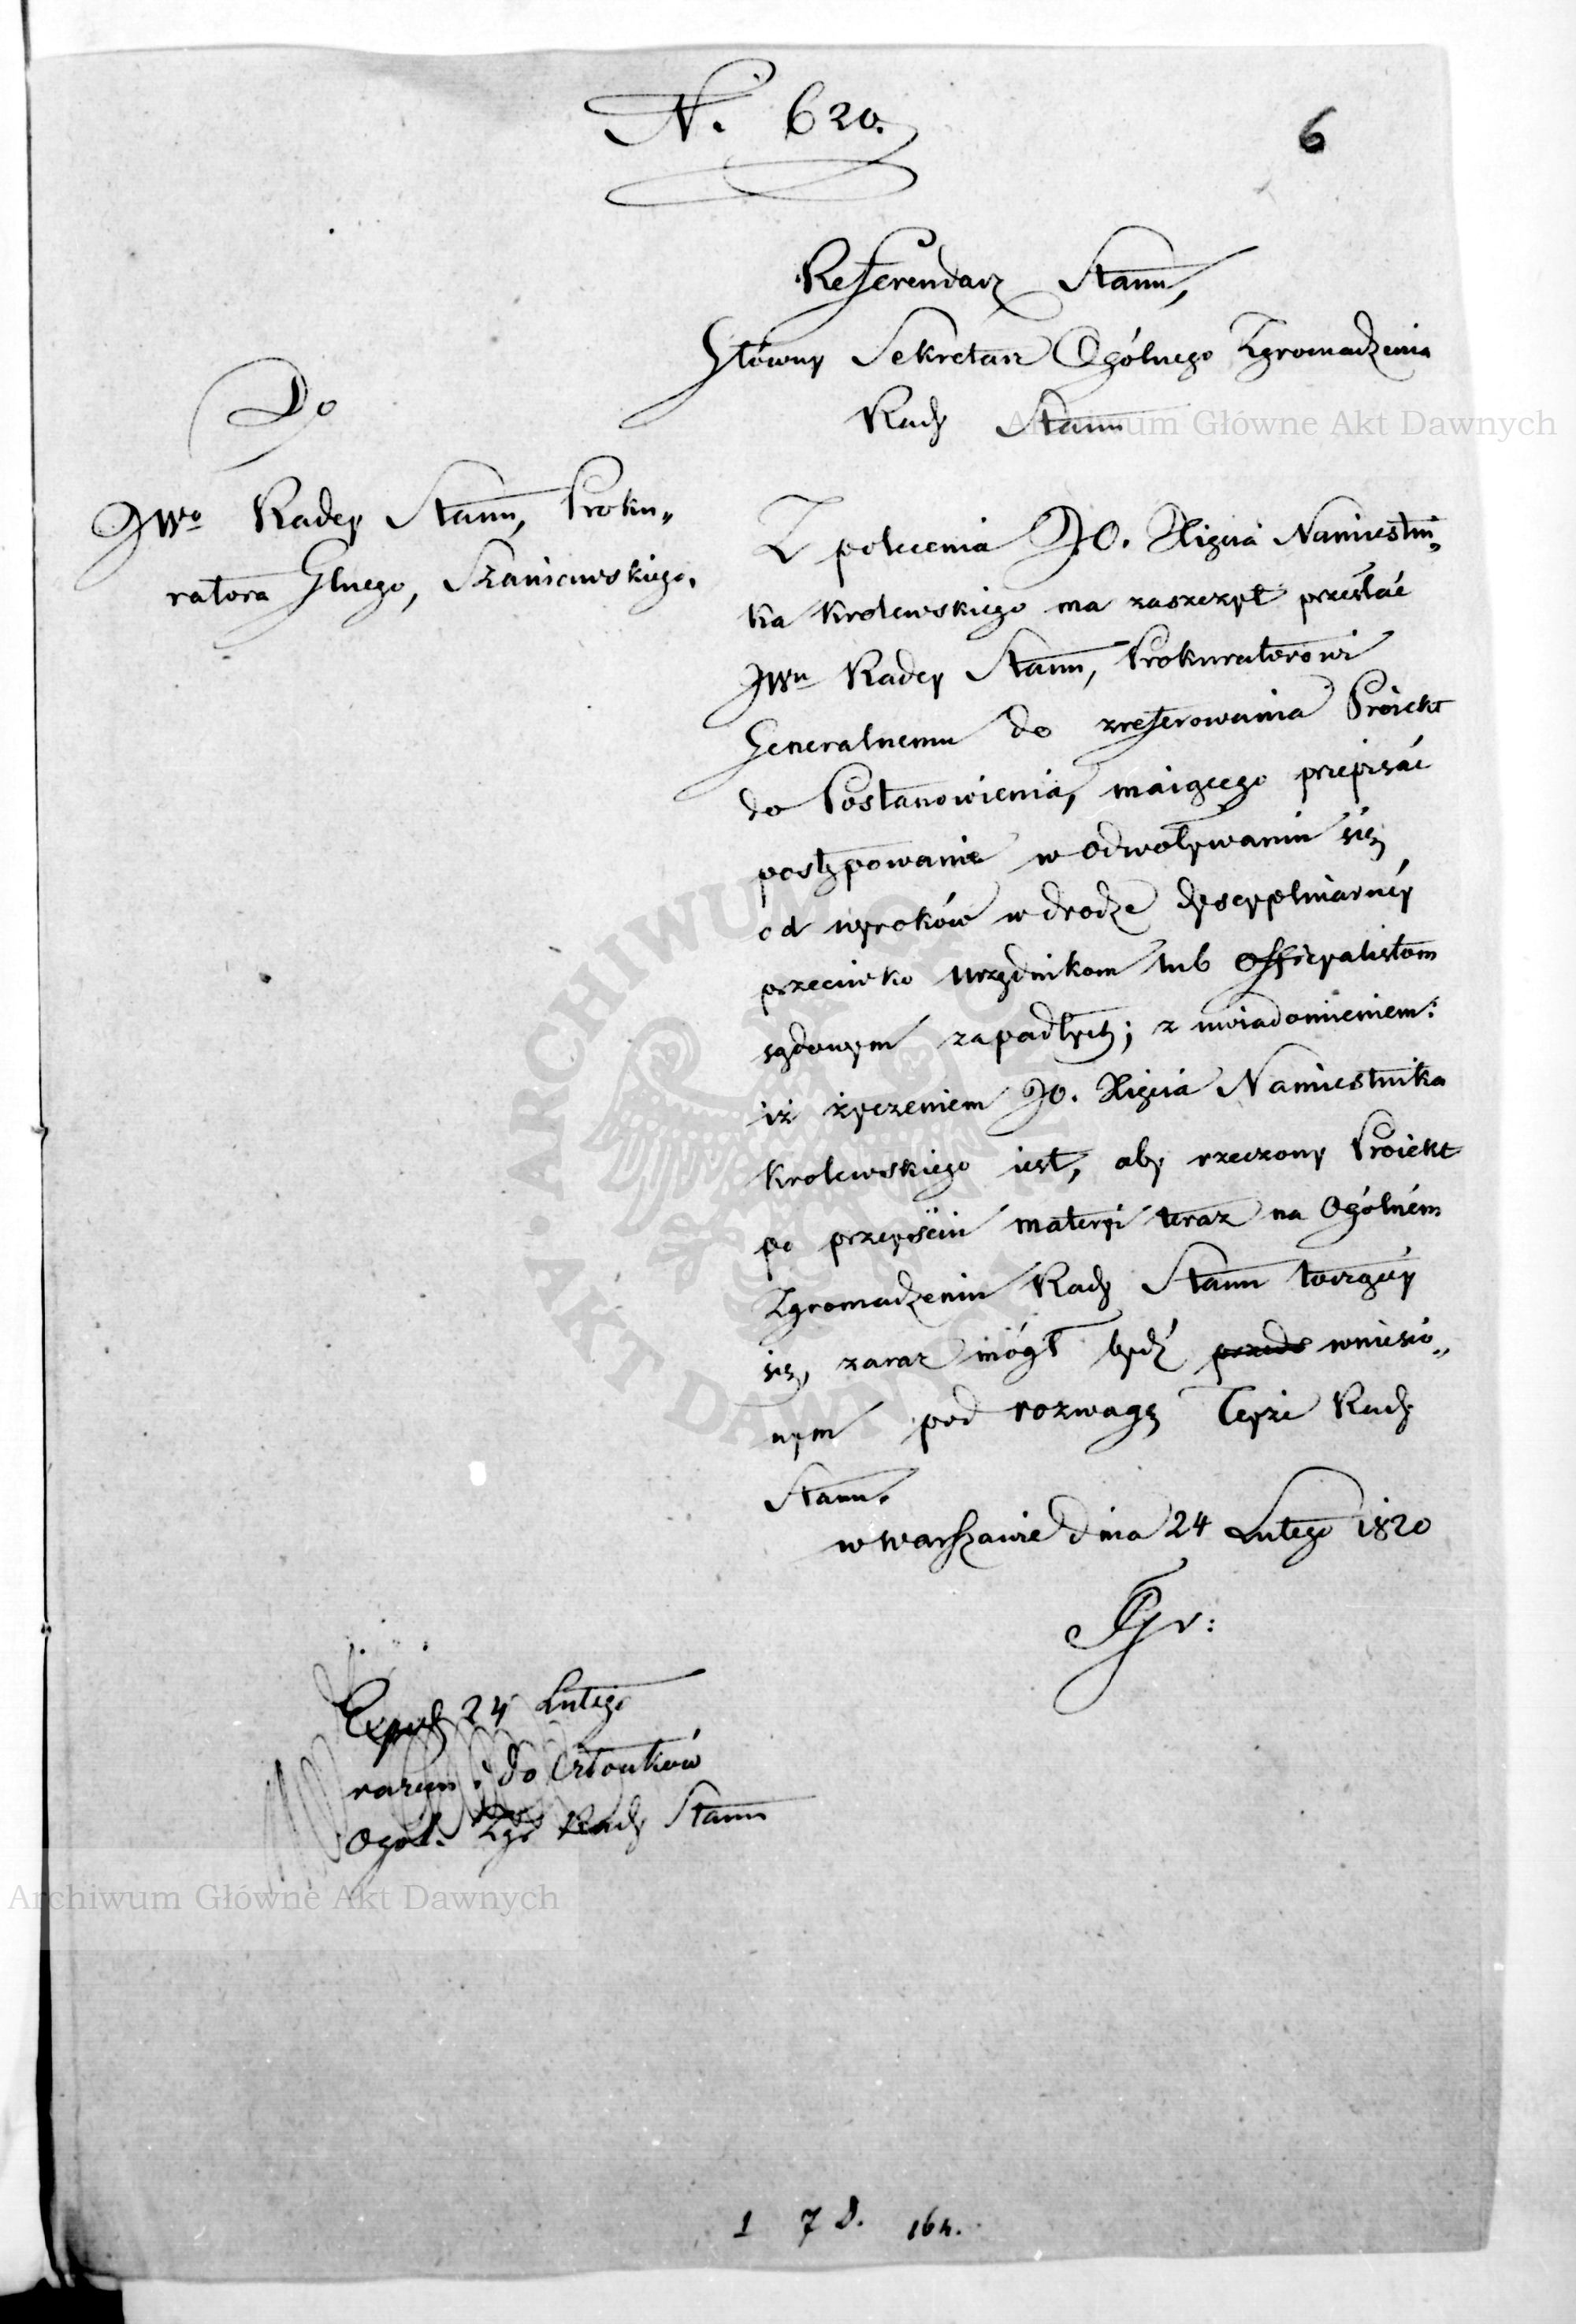 N. 620.
6
Referendarz Stanu,
Główny Sekretarz Ogólnego Zgromadzenia
Rady Stanu
Do
JWo Radcy Stanu, Proku„
ratora Glnego, Szaniawskiego.
Z polecenia JO. Xięcia Namiestni„
ka Krolewskiego ma zaszczyt przesłać
JWu Radcy Stanu, Prokuratorowi
Generalnemu do zreferowania Proiekt
do Postanowienia, maiącego przepisać
postępowanie w odwoływaniu się
od wyroków w drodze dyscyplinarnéy
przeciwko urzędnikom lub officyalistom
sądowym zapadłych; z uwiadomieniem:
iż życzeniem JO. Xięcia Namiestnika
Krolewskiego iest, aby rzeczony Proiekt
po przeyściu materyi teraz na Ogólném
Zgromadzeniu Rady Stanu toczącéy
się, zaraz mógł bydź wniesio„
nym pod rozwagę Teyże Rady
Stanu.
w Warszawie dnia 24 Lutego 1820
Exped 24 Lutego
razem do Członków
Ogól. Zgr Rady Stanu
1 7 d. 164.
Archiwum Główne Akt Dawnych
Archiwum Główne Akt Dawnych
ARCHIWUM GŁÓWNE AKT DAWNYCH